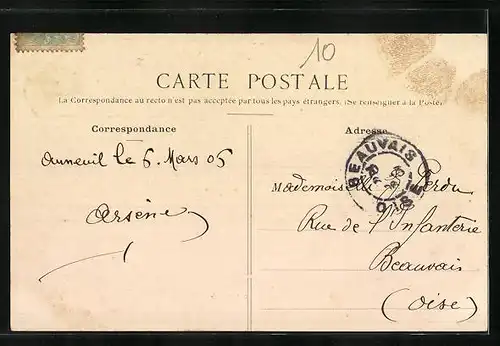 10
CARTE POSTALE
La Correspondance au recto n'est pas acceptée par tous les pays étrangers. (Se renseigner à la Poste)
Correspondance
Adresse
Auneuil le 6. Mars 05
Arsène
BEAUVAIS
OISE
Mademoiselle Perdu
Rue de l'Infanterie
Beauvais
(Oise)